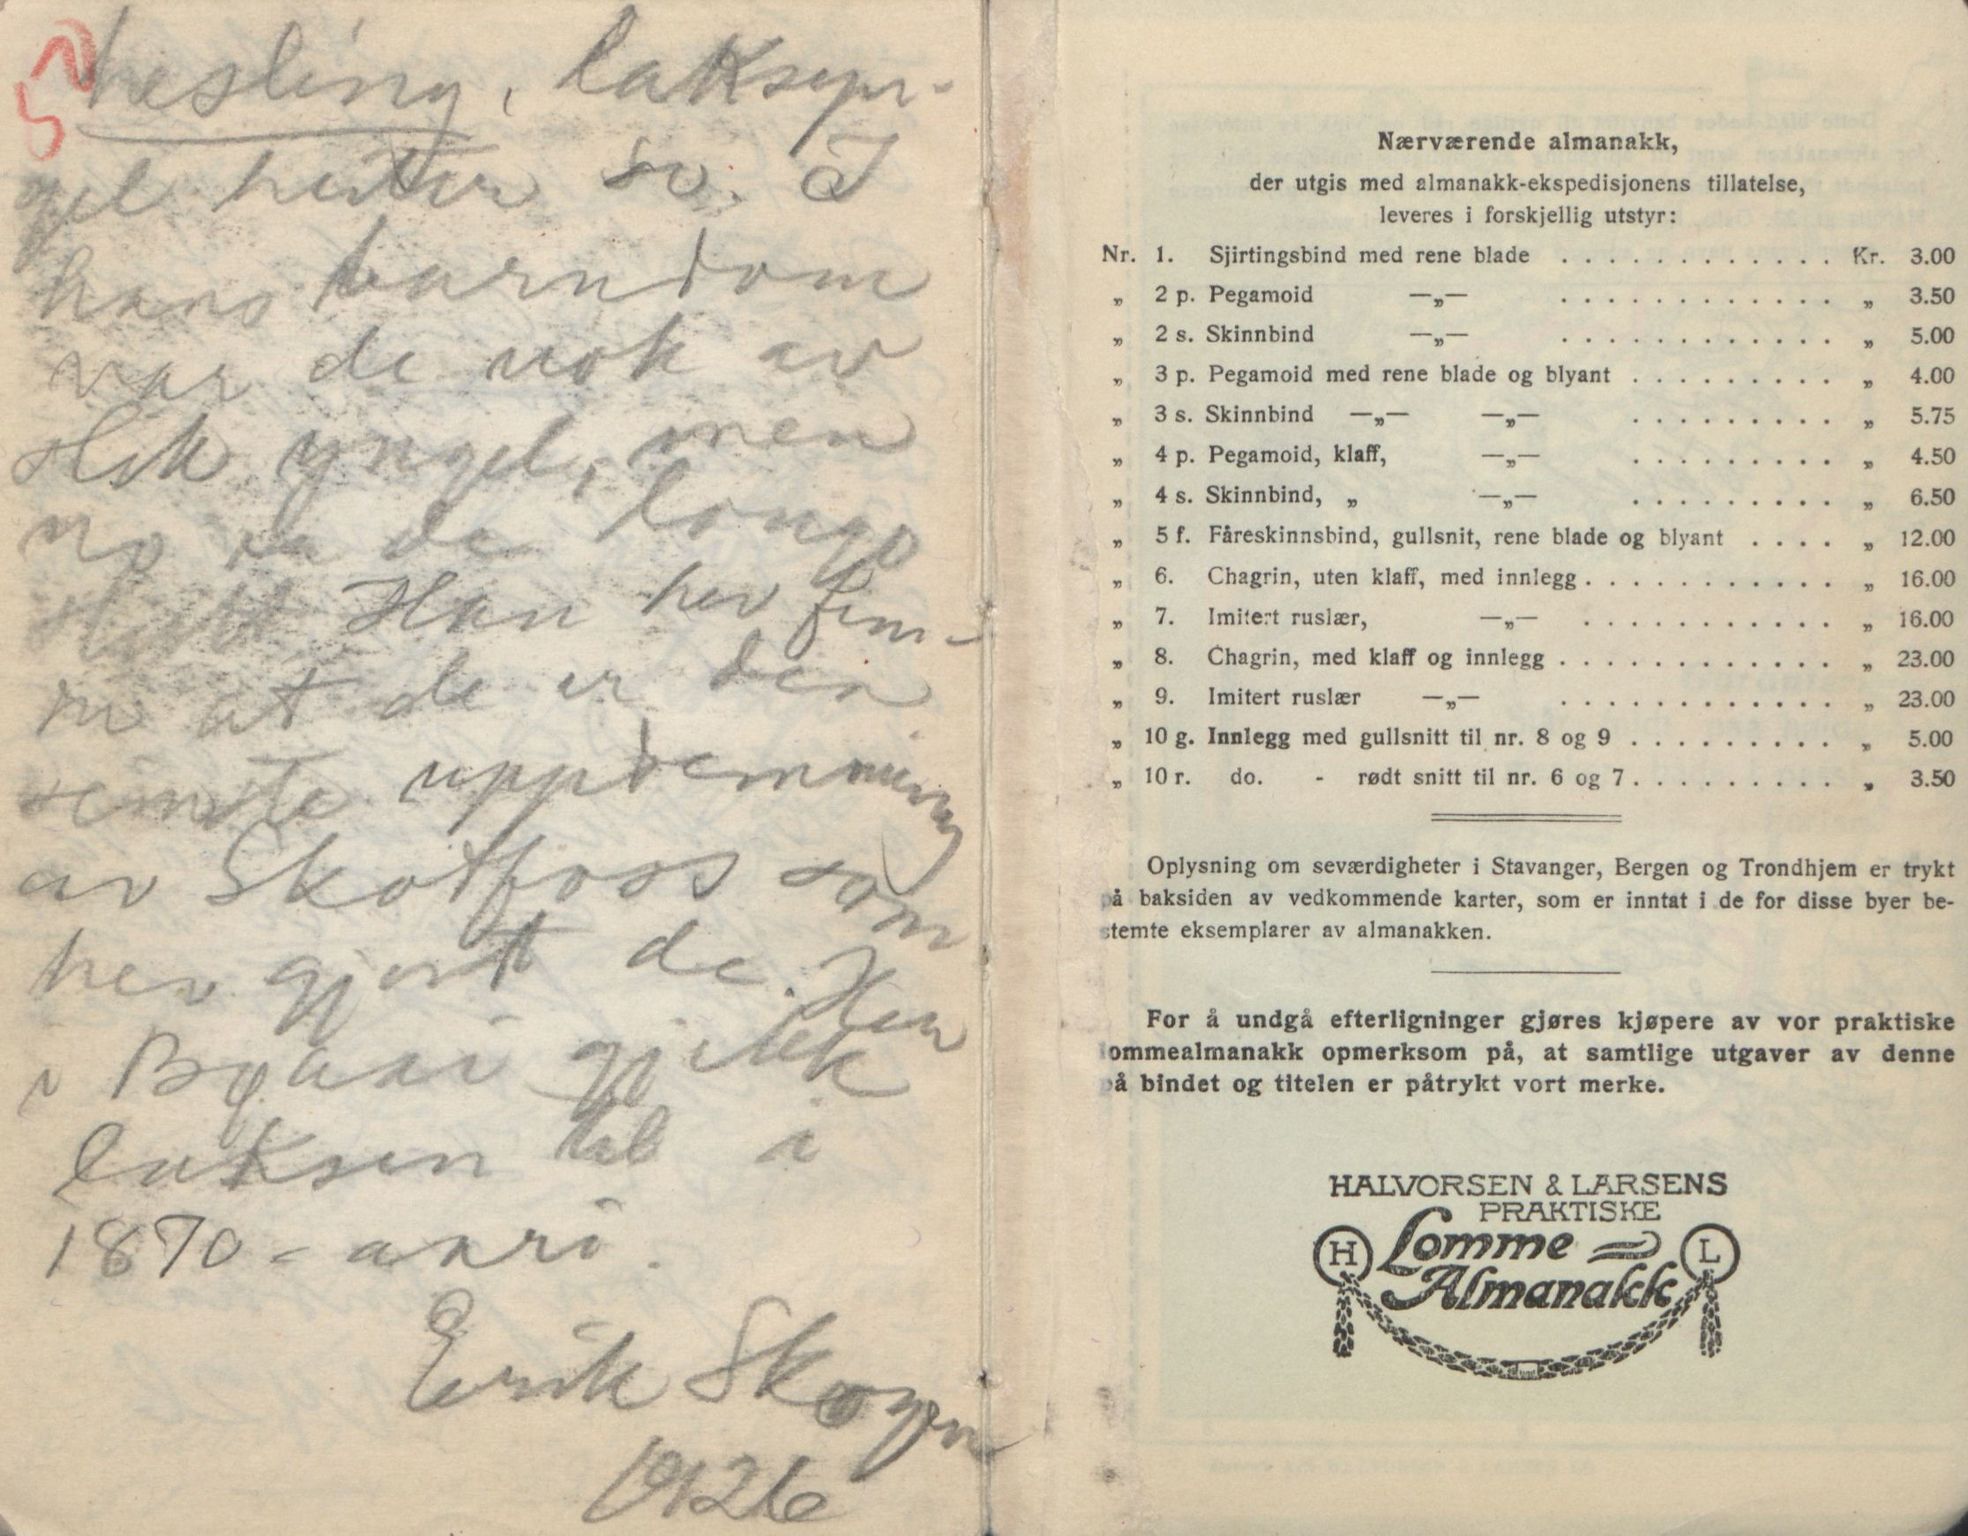 hesling, laksyn-
gel heiter so. I
hans barndom
var de nok av
slik yngel, men
no æ de longo
slutt Han hev fun-
ne at de er den
seinste uppdemning
av Skotfoss som
hev gjort de. Her
i Bøaai gjikk
laksen til i
1870-aari.
Erik Skogen
1926
Nærværende almanakk,
der utgis med almanakk-ekspedisjonens tillatelse,
leveres i forskjellig utstyr:
Nr. 1. Sjirtingsbind med rene blade . . . . . . . . . . . . Kr. 3.00
„ 2 p. Pegamoid —„— . . . . . . . . . . . . „ 3.50
„ 2 s. Skinnbind —„— . . . . . . . . . . . . „ 5.00
„ 3 p. Pegamoid med rene blade og blyant . . . . . . . . . „ 4.00
„ 3 s. Skinnbind —„— —„— . . . . . . . . . „ 5.75
„ 4 p. Pegamoid, klaff, —„— . . . . . . . . . „ 4.50
„ 4 s. Skinnbind, „ —„— . . . . . . . . . „ 6.50
„ 5 f. Fåreskinnsbind, gullsnit, rene blade og blyant . . . . „ 12.00
„ 6. Chagrin, uten klaff, med innlegg . . . . . . . . . . . „ 16.00
„ 7. Imitert ruslær, —„— . . . . . . . . . . . „ 16.00
„ 8. Chagrin, med klaff og innlegg . . . . . . . . . . . . „ 23.00
„ 9. Imitert ruslær —„— . . . . . . . . . . . . „ 23.00
„ 10 g. Innlegg med gullsnitt til nr. 8 og 9 . . . . . . . . . „ 5.00
„ 10 r. do. - rødt snitt til nr. 6 og 7 . . . . . . . . . „ 3.50
Oplysning om seværdigheter i Stavanger, Bergen og Trondhjem er trykt
på baksiden av vedkommende karter, som er inntat i de for disse byer be-
stemte eksemplarer av almanakken.
For å undgå efterligninger gjøres kjøpere av vor praktiske
lommealmanakk opmerksom på, at samtlige utgaver av denne
på bindet og titelen er påtrykt vort merke.
HALVORSEN & LARSENS
PRAKTISKE
H Lomme L
Almanakk